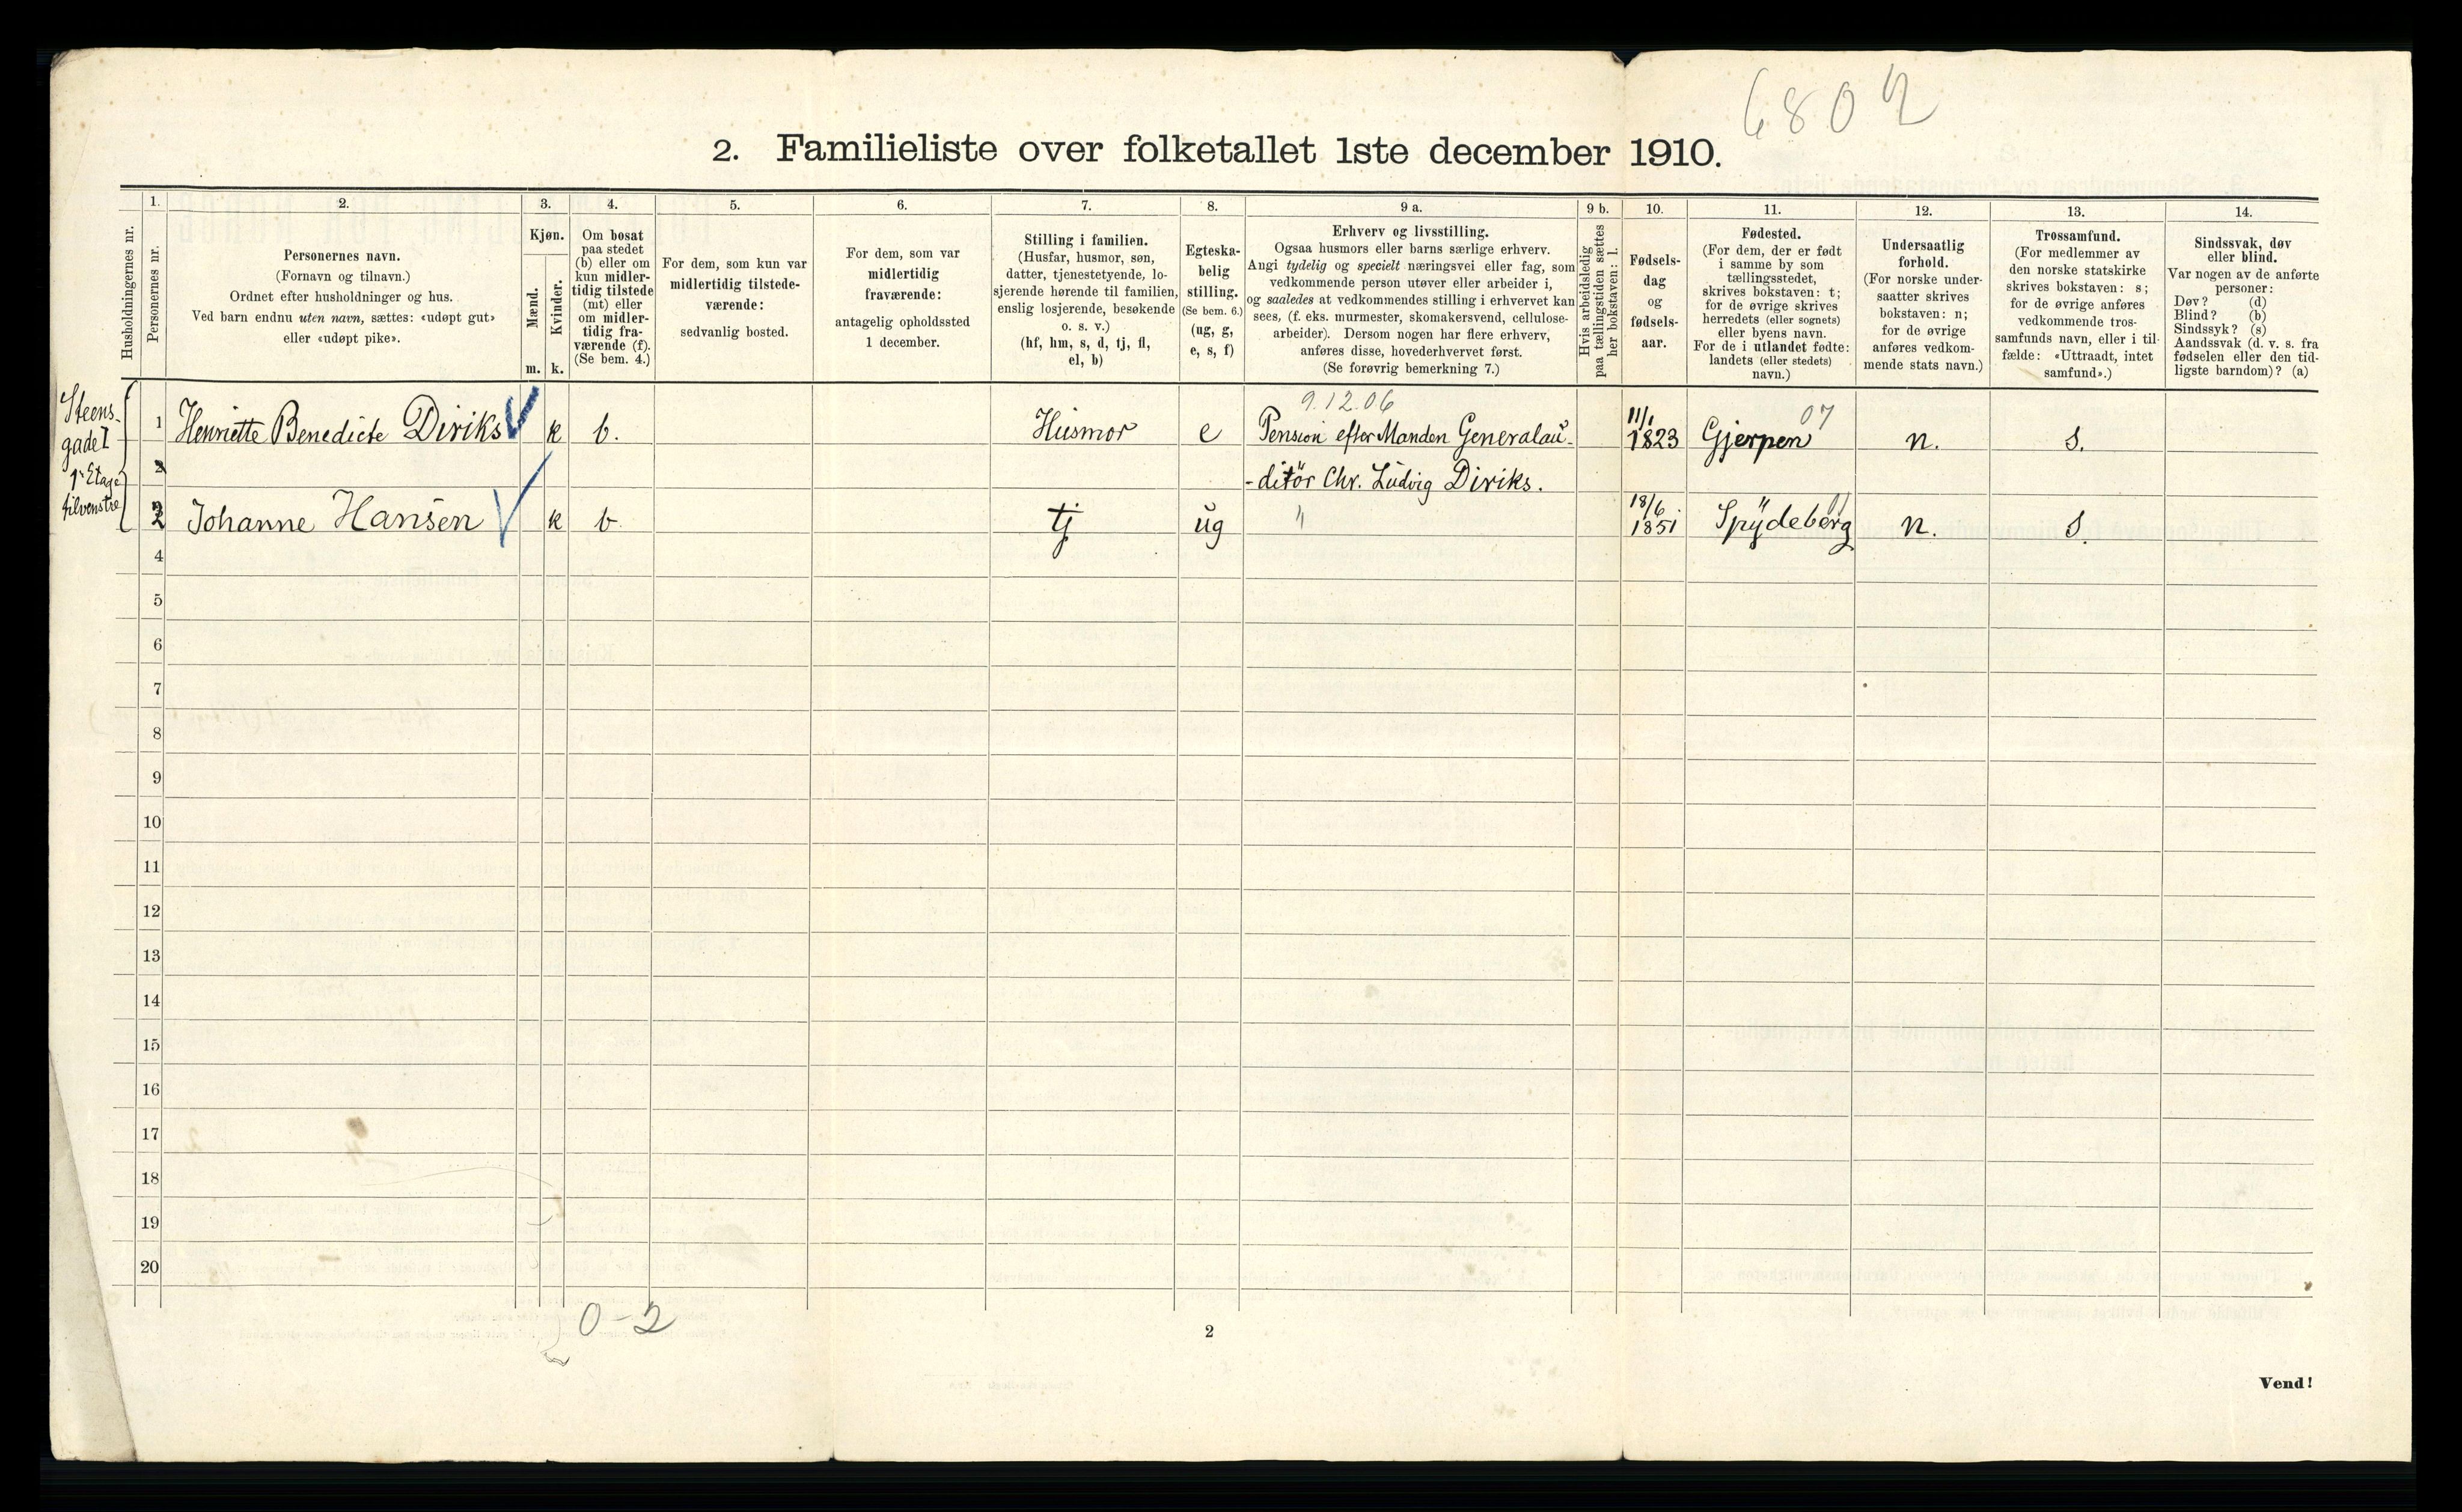 6802
2. Familieliste over folketallet 1ste december 1910.
Husholdningernes nr.
1.
Personernes nr.
2.
Personernes navn.
(Fornavn og tilnavn.)
Ordnet efter husholdninger og hus.
Ved barn endnu uten navn, sættes: «udøpt gut»
eller «udøpt pike».
3.
Kjøn.
Mænd.
Kvinder.
m. k.
4.
Om bosat
paa stedet
(b) eller om
kun midler-
tidig tilstede
(mt) eller
om midler-
tidig fra-
værende (f).
(Se bem. 4.)
5.
For dem, som kun var
midlertidig tilstede-
værende:
sedvanlig bosted.
6.
For dem, som var
midlertidig
fraværende:
antagelig opholdssted
1 december.
7.
Stilling i familien.
(Husfar, husmor, søn,
datter, tjenestetyende, lo-
sjerende hørende til familien,
enslig losjerende, besøkende
o. s. v.)
(hf, hm, s, d, tj, fl,
el, b)
8.
Egteska-
belig
stilling.
(Se bem. 6.)
(ug, g,
e, s, f)
9 a.
Erhverv og livsstilling.
Ogsaa husmors eller barns særlige erhverv.
Angi tydelig og specielt næringsvei eller fag, som
vedkommende person utøver eller arbeider i,
og saaledes at vedkommendes stilling i erhvervet kan
sees, (f. eks. murmester, skomakersvend, cellulose-
arbeider). Dersom nogen har flere erhverv,
anføres disse, hovederhvervet først.
(Se forøvrig bemerkning 7.)
9 b.
Hvis arbeidsledig
paa tællingstiden sættes
her bokstaven: l.
10.
Fødsels-
dag
og
fødsels-
aar.
11.
Fødested.
(For dem, der er født
i samme by som
tællingsstedet,
skrives bokstaven: t;
for de øvrige skrives
herredets (eller sognets)
eller byens navn.
For de i utlandet fødte:
landets (eller stedets)
navn.)
12.
Undersaatlig
forhold.
(For norske under-
saatter skrives
bokstaven: n;
for de øvrige
anføres vedkom-
mende stats navn.)
13.
Trossamfund.
(For medlemmer av
den norske statskirke
skrives bokstaven: s;
for de øvrige anføres
vedkommende tros-
samfunds navn, eller i til-
fælde: «Uttraadt, intet
samfund».)
14.
Sindssvak, døv
eller blind.
Var nogen av de anførte
personer:
Døv? (d)
Blind? (b)
Sindssyk? (s)
Aandssvak (d. v. s. fra
fødselen eller den tid-
ligste barndom)? (a)
Steens-
gade 1
1ste Etage
tilvenstre
9.12.06
1 Henriette Benedicte Diriks k b. Husmor e Pension efter Manden Generalau- 11/1 1823 Gjerpen 07 n. s.
2 -ditör Chr. Ludvig Diriks.
2 Johanne Hansen k b tj ug " 18/6 1851 Spydeberg 01 n. s.
4
5
6
7
8
9
10
11
12
13
14
15
16
17
18
19
20
0-2
2
Vend!